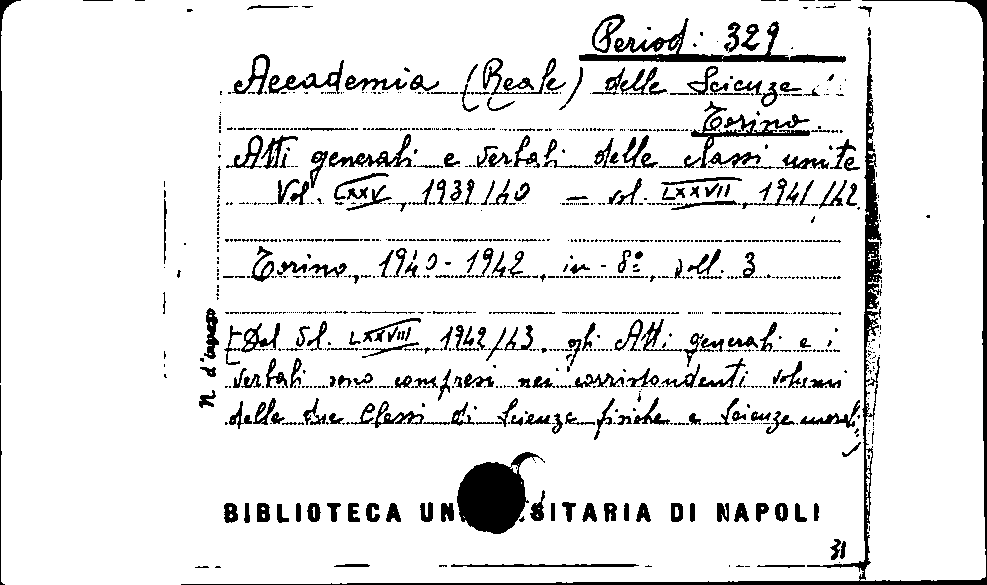 Period: 329
Accademia (Reale) delle Scienze.
Torino.
Atti generali e verbali delle classi unite
Vol. LXXV, 1939/40 — vol. LXXVII, 1941/42
Torino, 1940-1942, in-8º, voll. 3.
N. d'ingresso
[Dal vol. LXXVIII, 1942/43, gli Atti generali e i
verbali sono compresi nei corrispondenti volumi
delle due Classi di Scienze fisiche e Scienze morali
BIBLIOTECA UN SITARIA DI NAPOLI
31